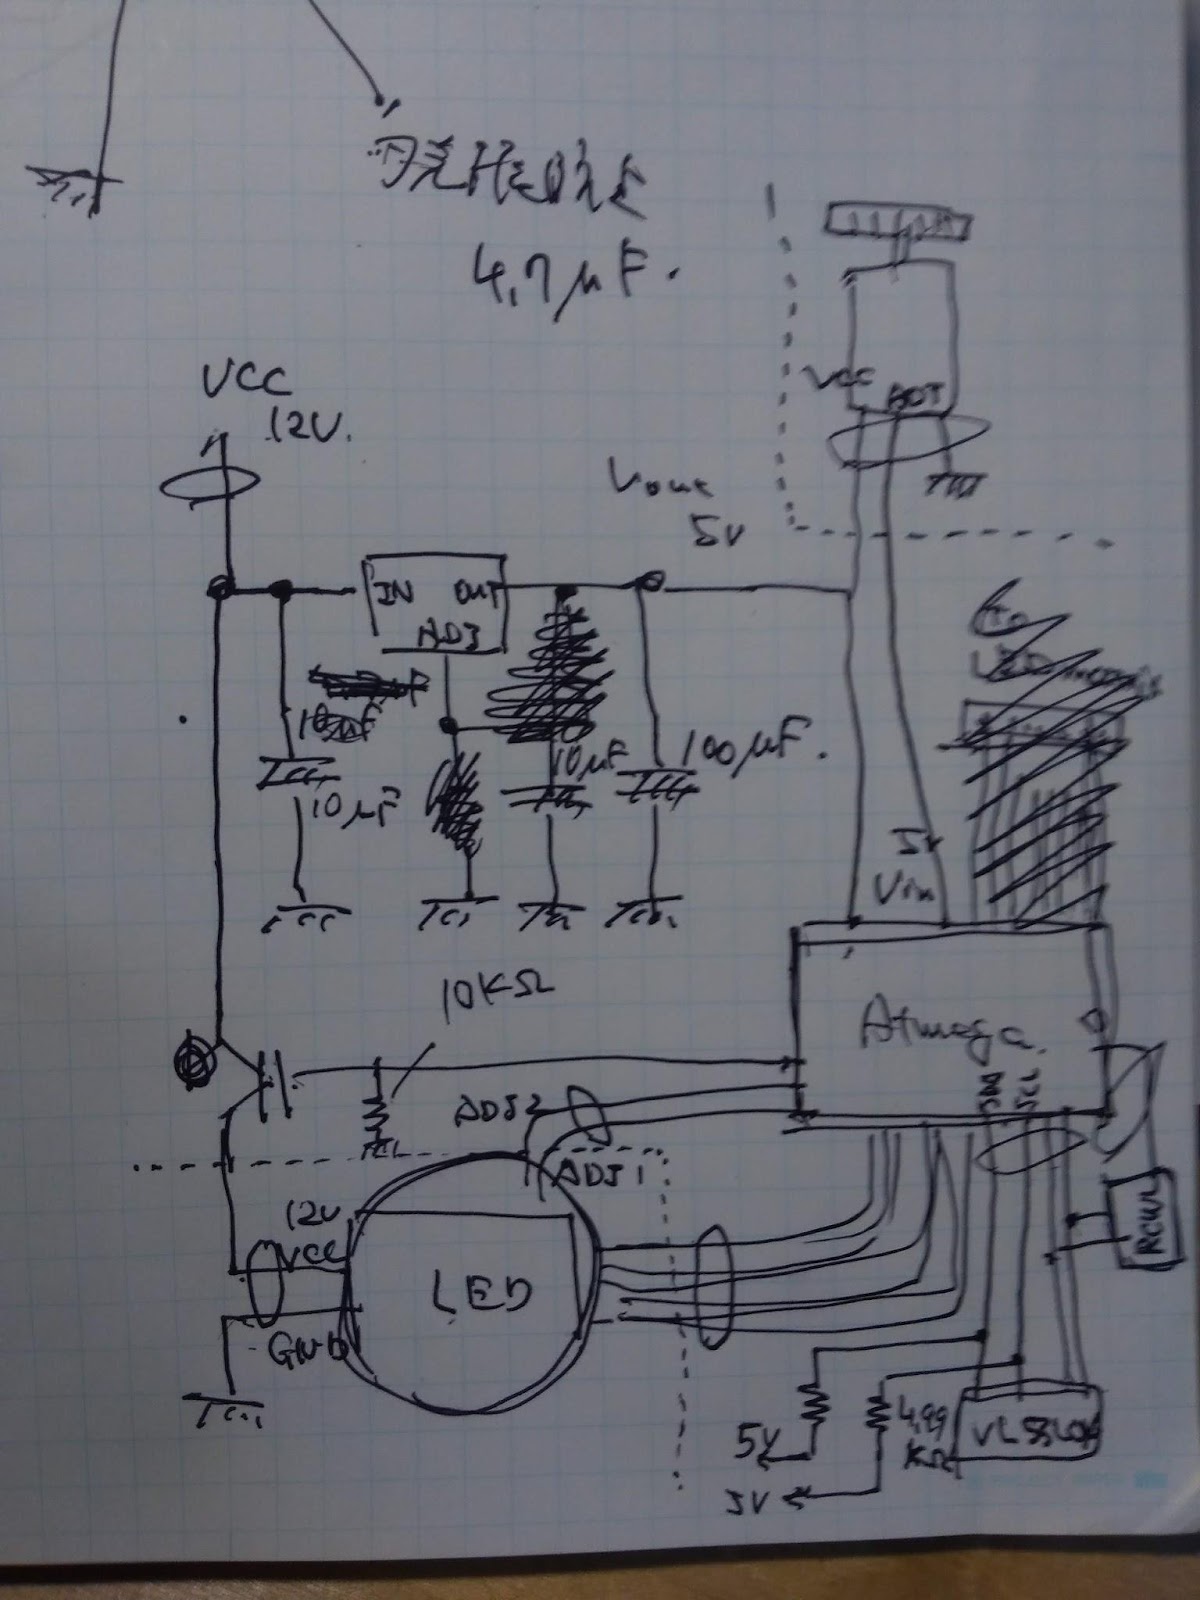 4.7μF.
VCC
12V.
VCC
Vout
5V
IN OUT
ADJ
10μF
10μF
100μF.
5V
Vin
10KΩ
Atmega.
SDA
SCL
ADJ2
ADJ1
12V
VCC
LED
GND
5V
4.99
KΩ
5V